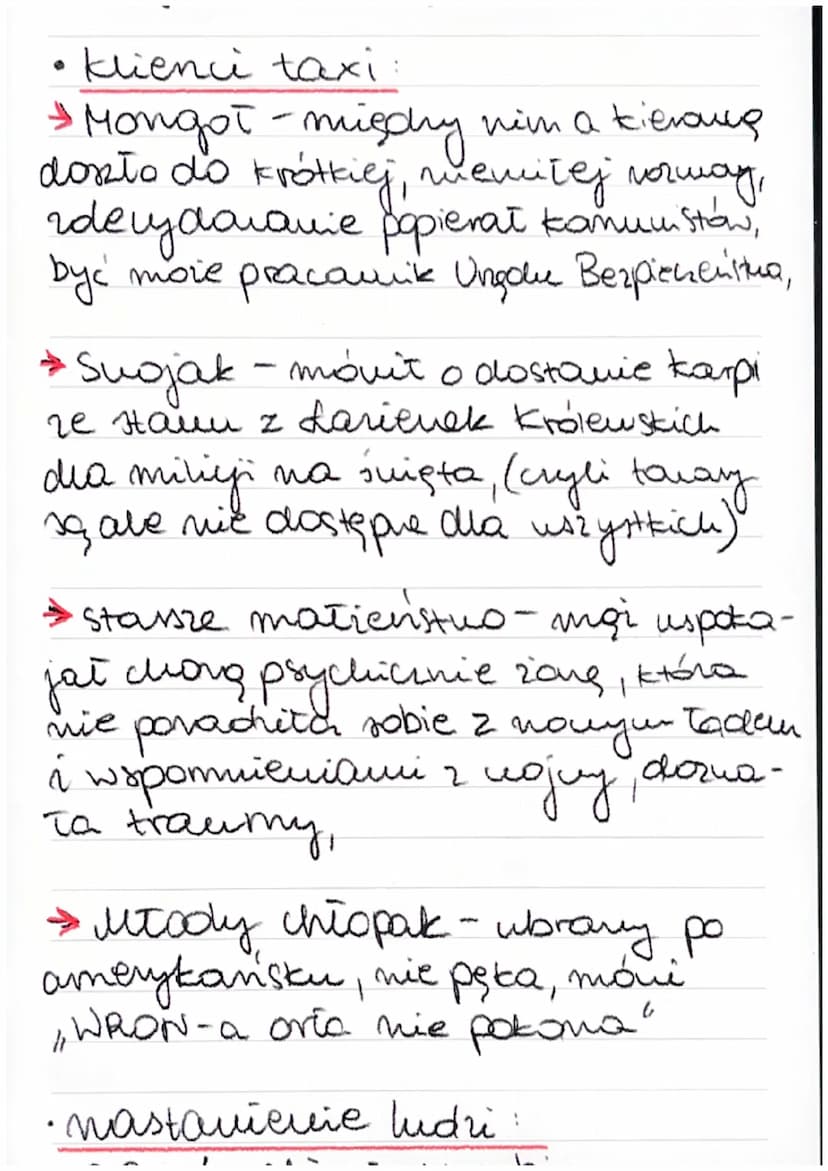 • klienci taxi:
→ Mongoł - między nim a kierowcą
doszło do krótkiej, niemiłej rozmowy,
zdecydowanie popierał komunistów,
być może pracownik Urzędu Bezpieczeństwa,
→ Swojak - mówił o dostawie karpi
ze stawu z Łazienek Królewskich
dla milicji na święta, (czyli towary
są, ale nie dostępne dla wszystkich)
→ starsze małżeństwo - mąż uspoka-
jał chorą psychicznie żonę, która
nie poradziła sobie z nowym ładem
i wspomnieniami z wojny, dozna-
ła traumy,
→ Młody chłopak - ubrany po
amerykańsku, nie pęka, mówi
„WRON-a orła nie pokona"
• nastawienie ludzi: